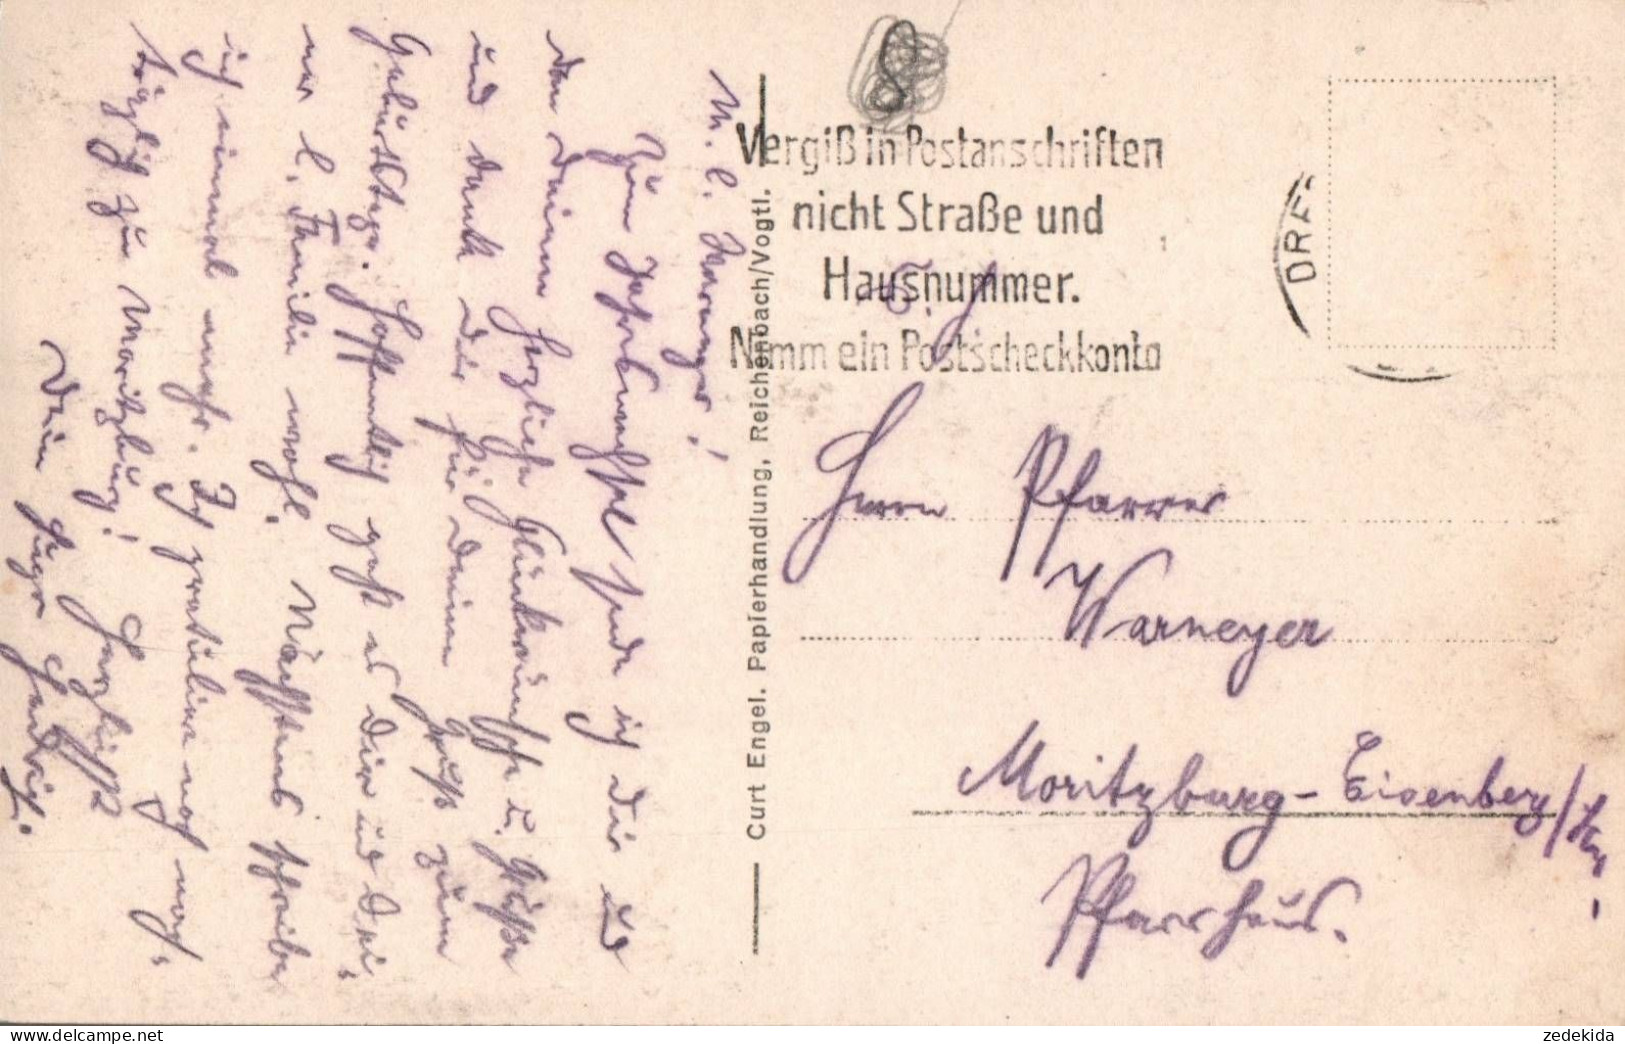 M. l. Warneyer!
Zum Jahreswechsel sende ich Dir und
den Deinen herzliche Glückwünsche u. Grüße
und danke Dir für Deinen Gruß zum
Geburtstage. Hoffentlich geht es Dir und Dei-
ner l. Familie wohl. Nächstens schreibe
ich einmal mehr. Ich gratuliere noch nach-
träglich zu Moritzburg! Herzlichst
Dein Hugo
Curt Engel. Papierhandlung, Reichenbach/Vogtl.
Vergiß in Postanschriften
nicht Straße und
Hausnummer.
Nimm ein Postscheckkonto
DRES
Herrn Pfarrer
Warneyer
Moritzburg-Eisenberg/
Pfarrhaus.
zedekida